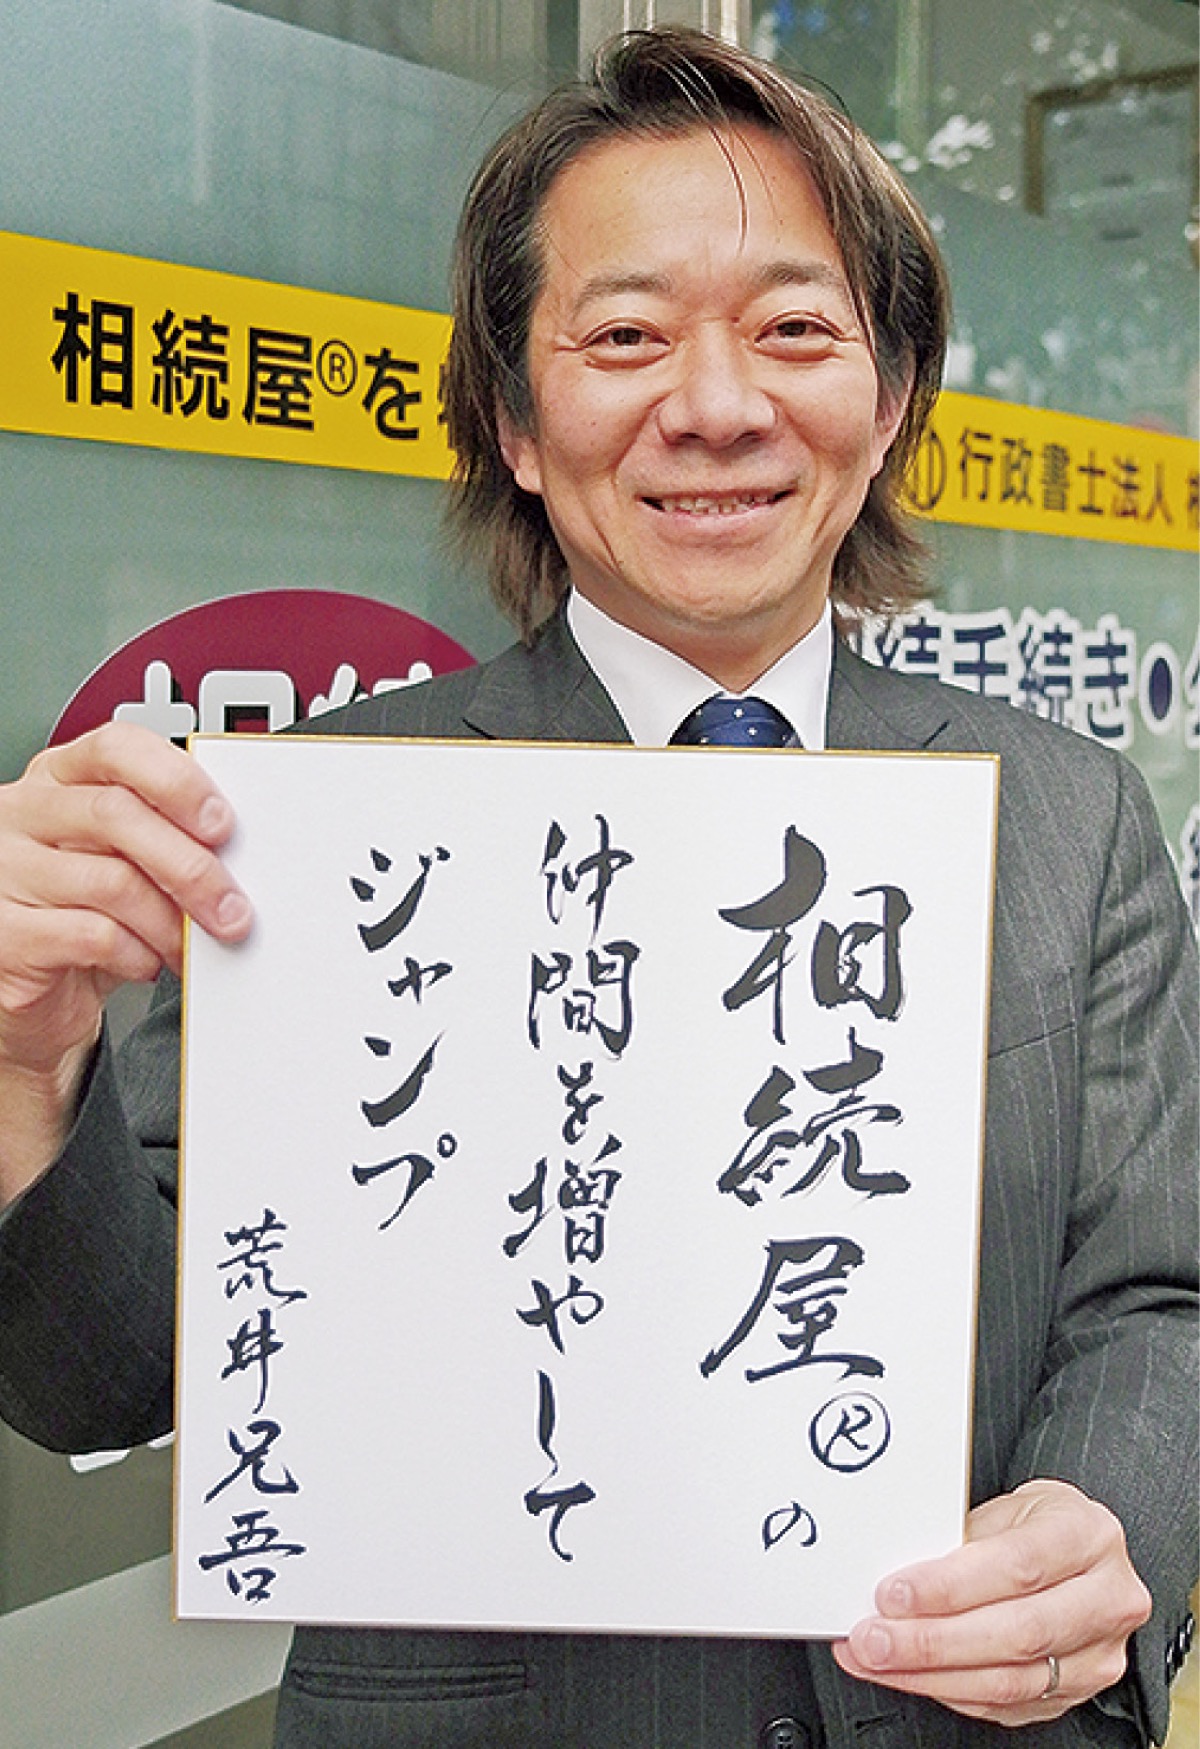 相続屋®を
行政書士法人
相続
続手続き・
相続屋®の
仲間を増やして
ジャンプ
荒井兄吾